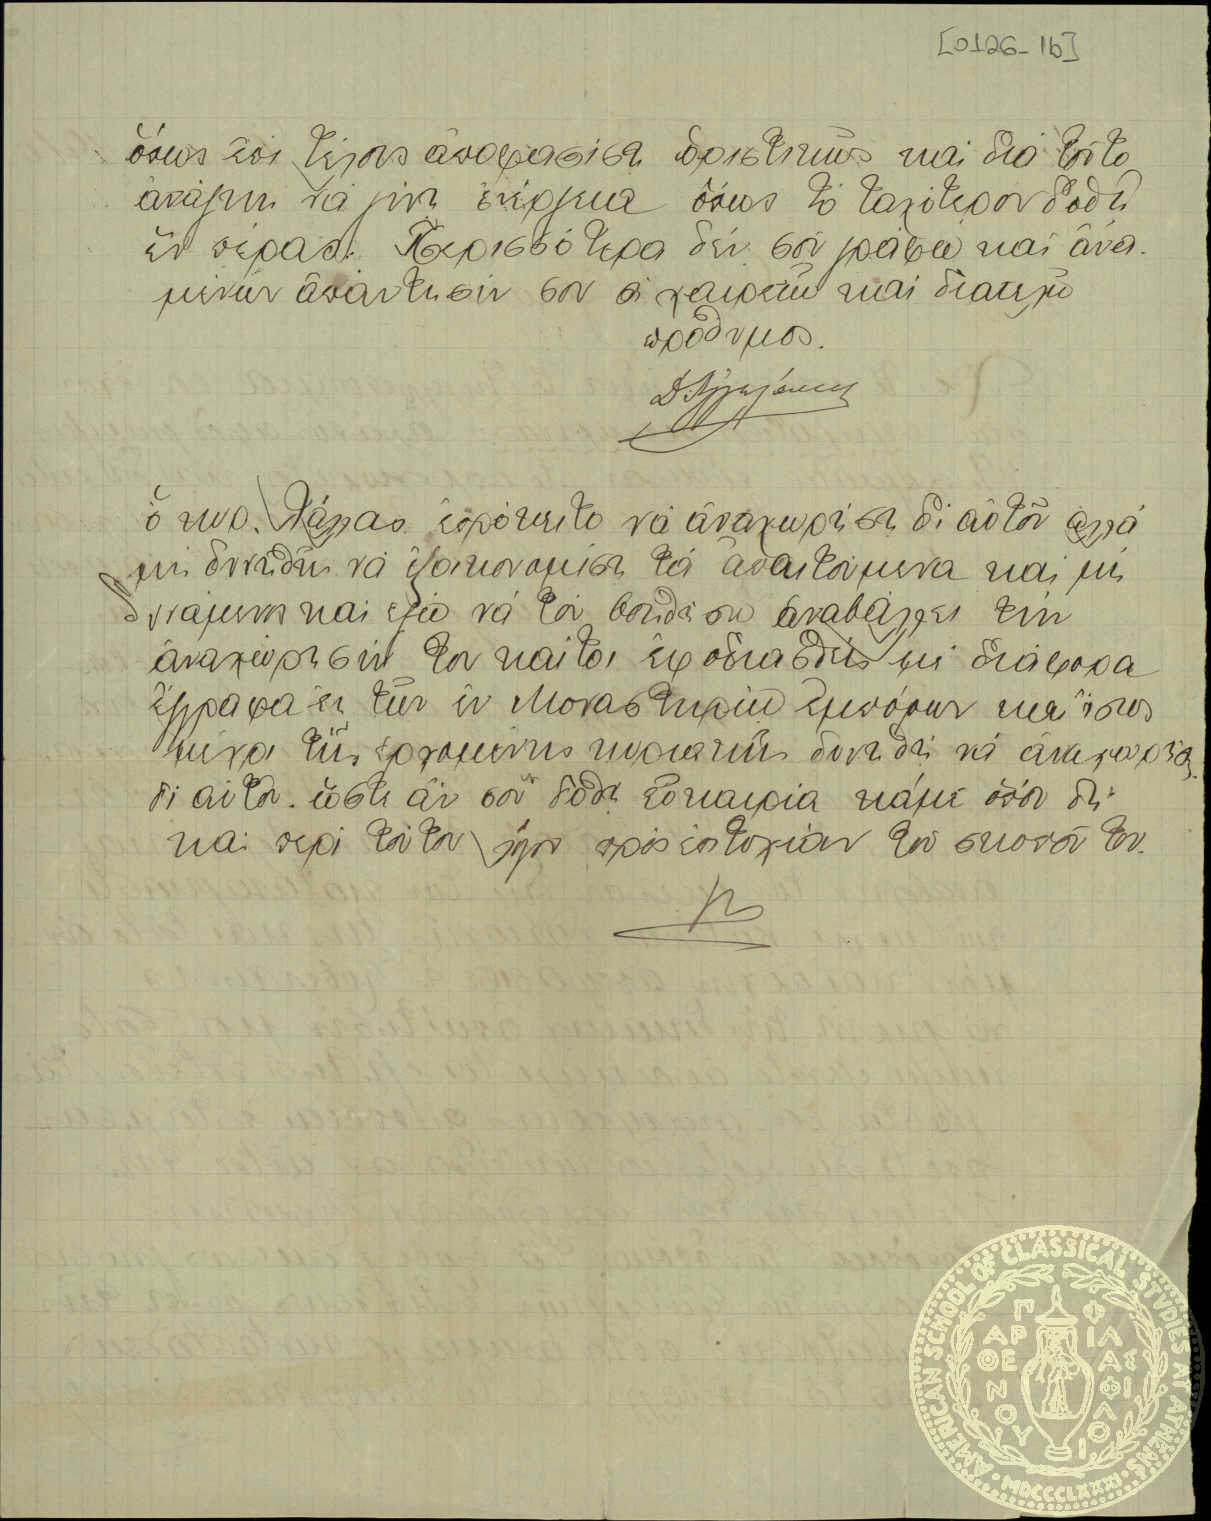 [0126-1b]
ὅπως ἐπὶ τέλους ἀποφασίσῃ ὁριστικῶς καὶ διὰ τοῦτο
ἀνάγκη νὰ γίνῃ ἐνέργεια ὅπως τὸ ταχύτερον δοθῇ
ἓν πέρας. Περισσότερα δέν σοὶ γράφω καὶ ἀνα-
μένων ἀπάντησίν σου σὲ χαιρετῶ καὶ διατελῶ
πρόθυμος.
ὁ κυρ. Λάλλας ἐπρόκειτο νὰ ἀναχωρήσῃ δι αὐτοῦ ἀλλὰ
μὴ δυνηθεὶς νὰ ἐξοικονομήσῃ τὰ ἀπαιτούμενα καὶ μὴ
δυνάμενος καὶ ἐγὼ νὰ τὸν βοηθήσω ἀναβάλλει τὴν
ἀναχώρησίν του καίτοι ἐφοδιασθεὶς μὲ διάφορα
ἔγγραφα ἐκ τῶν ἐν Μοναστηρίῳ ἐμπόρων καὶ ἴσως
μέχρι τῆς ἐρχομένης κυριακῆς δυνηθῇ νὰ ἀναχωρήσῃ
δι αὐτοῦ. ὥστε ἂν σοῦ δοθῇ εὐκαιρία κάμε ὅπου δεῖ
καὶ περὶ τούτου λόγον πρὸς ἐπιτυχίαν τοῦ σκοποῦ του.
AMERICAN SCHOOL OF CLASSICAL STVDIES AT ATHENS
ΠΑΡΘΕΝΟΥ ΦΙΛΑΣ ΦΙΛΟΙ
MDCCCLXXXI